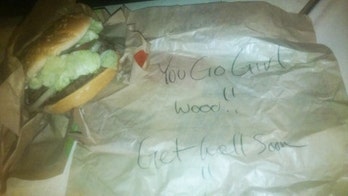 You Go Girl
wooo!!
Get well Soon
!!